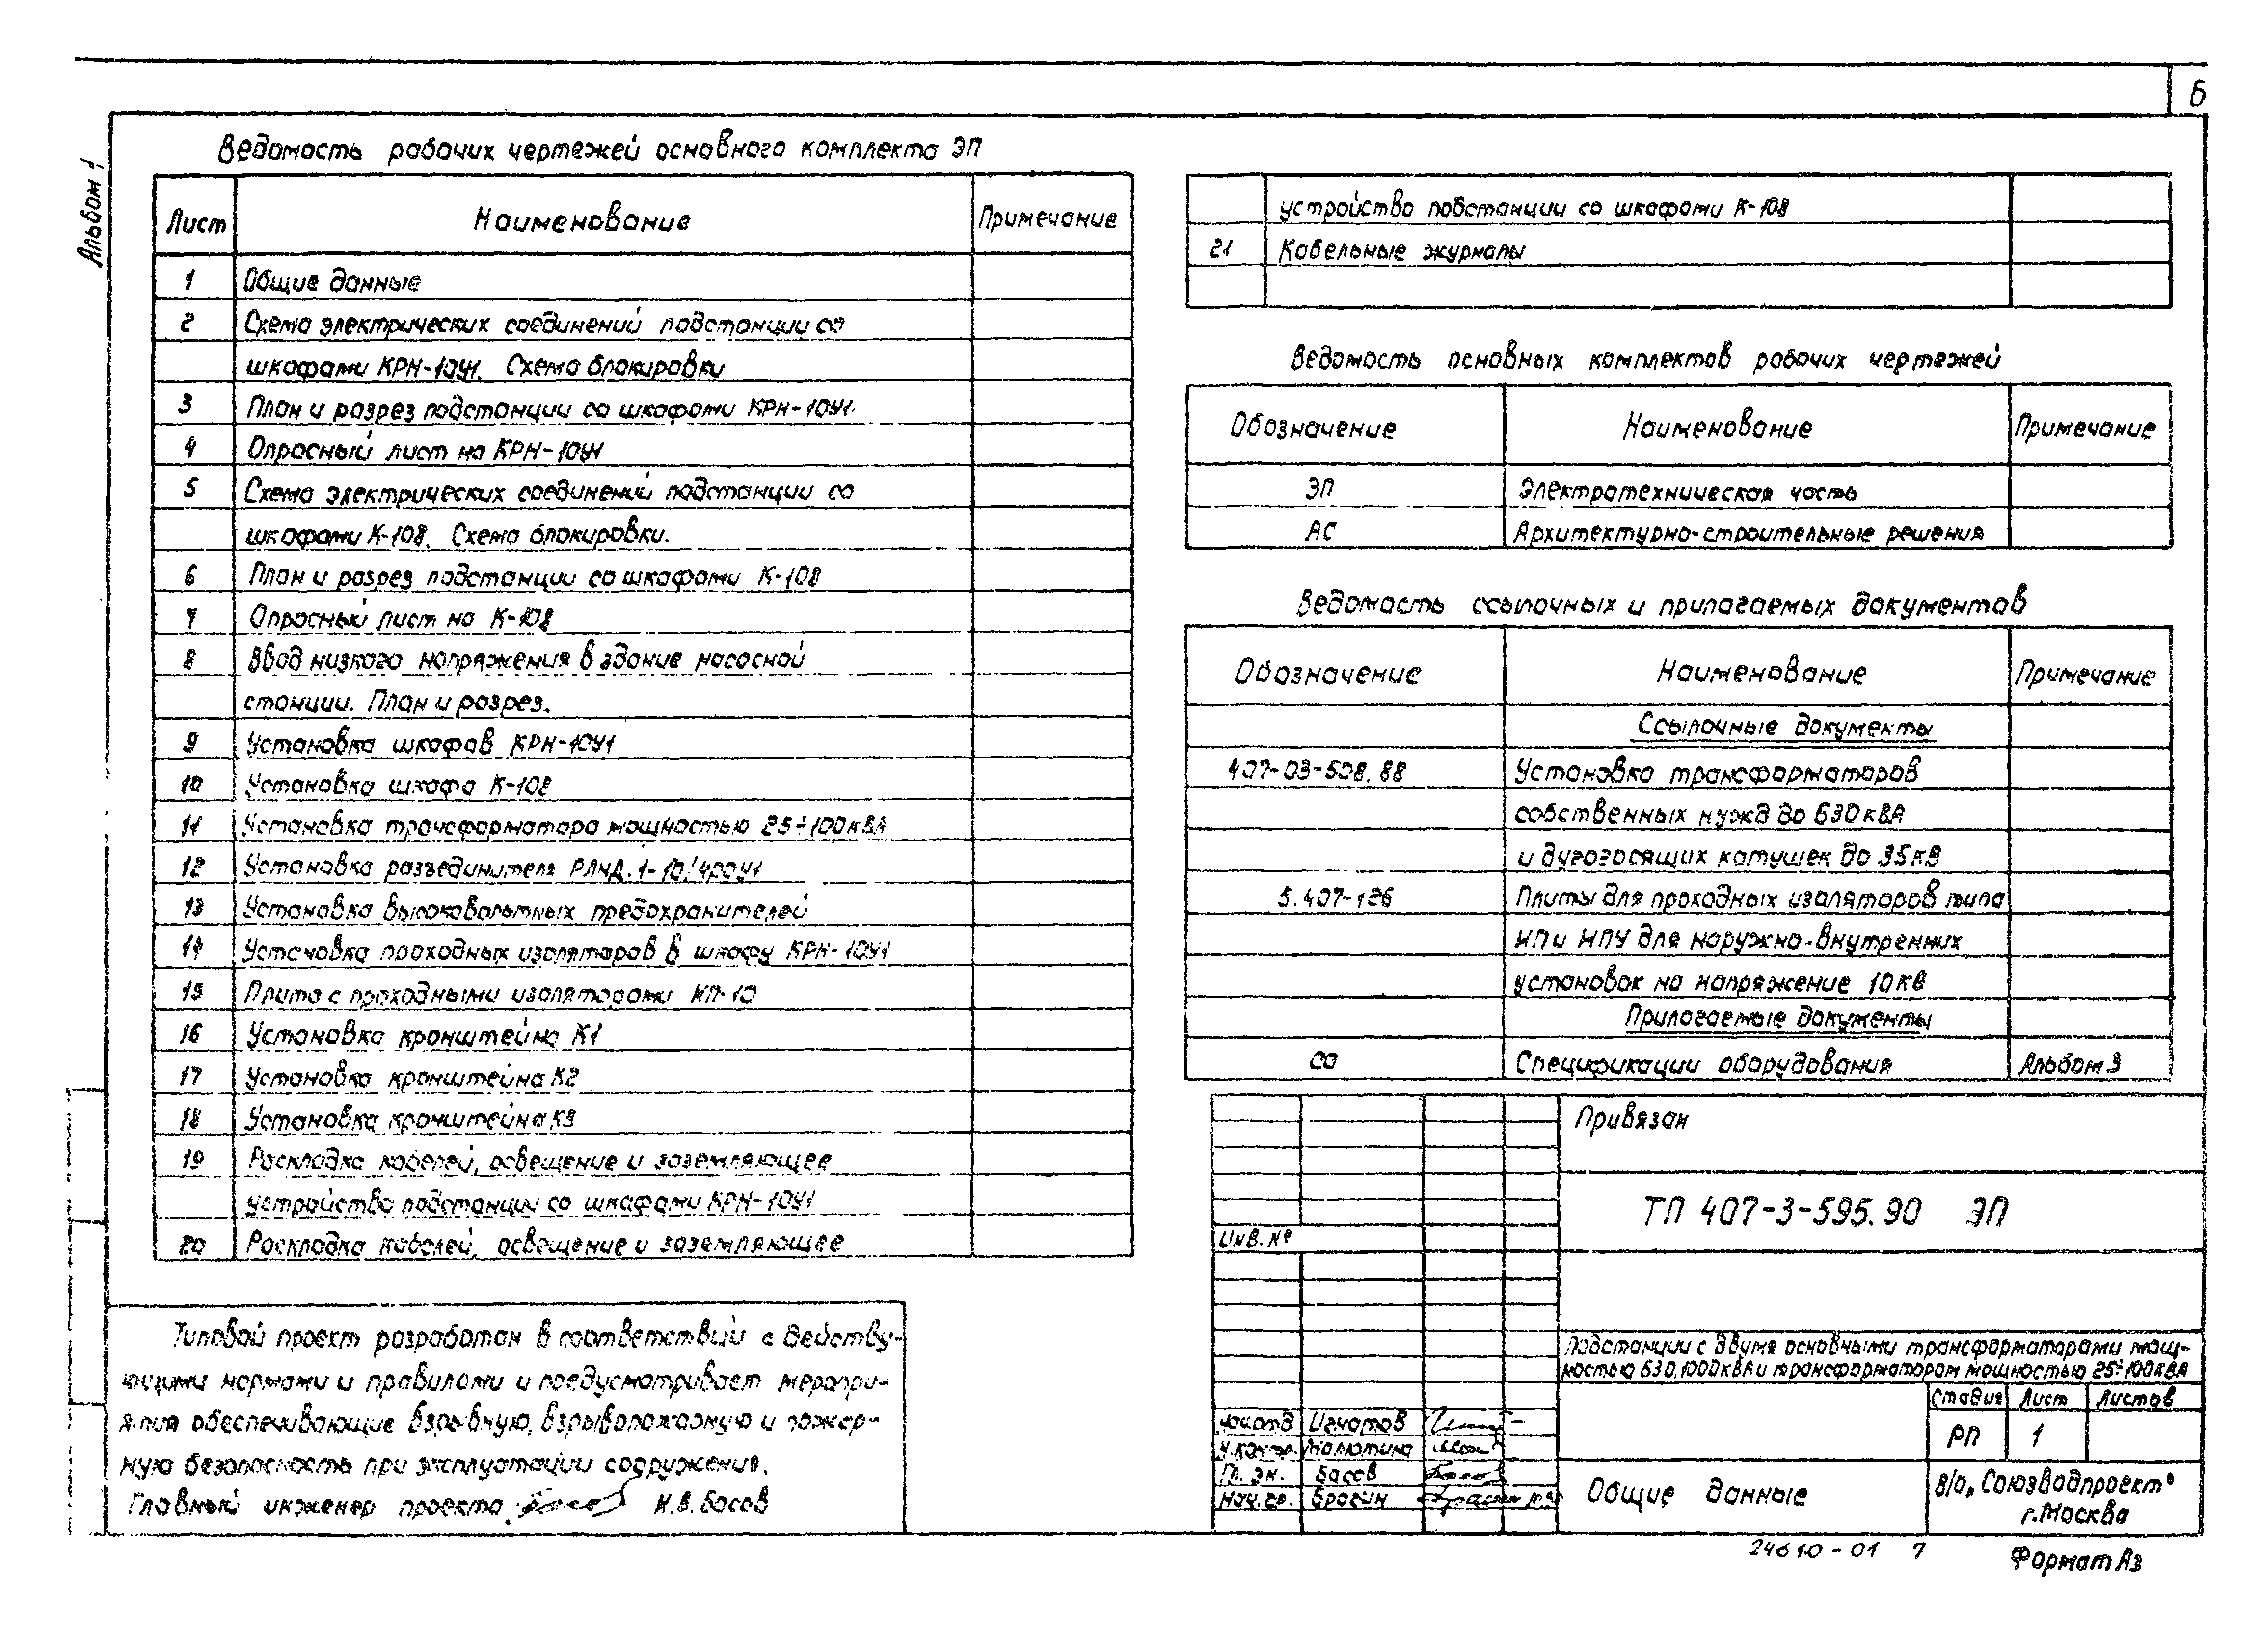 6
Альбом 1
Ведомость рабочих чертежей основного комплекта ЭП
Лист Наименование Примечание
1 Общие данные
2 Схема электрических соединений подстанции со
шкафами КРН-10У1. Схема блокировки
3 План и разрез подстанции со шкафами КРН-10У1.
4 Опросный лист на КРН-10У1
5 Схема электрических соединений подстанции со
шкафами К-108. Схема блокировки.
6 План и разрез подстанции со шкафами К-108
7 Опросный лист на К-108
8 Ввод низкого напряжения в здание насосной
станции. План и разрез.
9 Установка шкафов КРН-10У1
10 Установка шкафа К-108
11 Установка трансформатора мощностью 25÷100кВА
12 Установка разъединителя РЛНД.1-10/400У1
13 Установка высоковольтных предохранителей
14 Установка проходных изоляторов в шкафу КРН-10У1
15 Плита с проходными изоляторами ИП-10
16 Установка кронштейна К1
17 Установка кронштейна К2
18 Установка кронштейна К3
19 Раскладка кабелей, освещение и заземляющее
устройство подстанции со шкафами КРН-10У1
20 Раскладка кабелей, освещение и заземляющее
устройство подстанции со шкафами К-108
21 Кабельные журналы
Ведомость основных комплектов рабочих чертежей
Обозначение Наименование Примечание
ЭП Электротехническая часть
АС Архитектурно-строительные решения
Ведомость ссылочных и прилагаемых документов
Обозначение Наименование Примечание
Ссылочные документы
407-03-508.88 Установка трансформаторов
собственных нужд до 630кВА
и дугогасящих катушек до 35кВ
5.407-126 Плиты для проходных изоляторов типа
ИП и ИПУ для наружно-внутренних
установок на напряжение 10кВ
Прилагаемые документы
СО Спецификации оборудования Альбом 3
Типовой проект разработан в соответствии с действу-
ющими нормами и правилами и предусматривает меропри-
ятия обеспечивающие взрывную, взрывопожарную и пожар-
ную безопасность при эксплуатации сооружения.
Главный инженер проекта Н.В.Басов
Привязан
ТП 407-3-595.90 ЭП
Инв.№
Подстанции с двумя основными трансформаторами мощ-
ностью 630,1000кВА и трансформатором мощностью 25÷100кВА
Стадия Лист Листов
РП 1
Нач.отд Игнатов
Н.контр. Малютина
Гл. эн. Басов
Нач.ср. Брагин
Общие данные
В/О „Союзводпроект"
г.Москва
24610-01 7
Формат А3